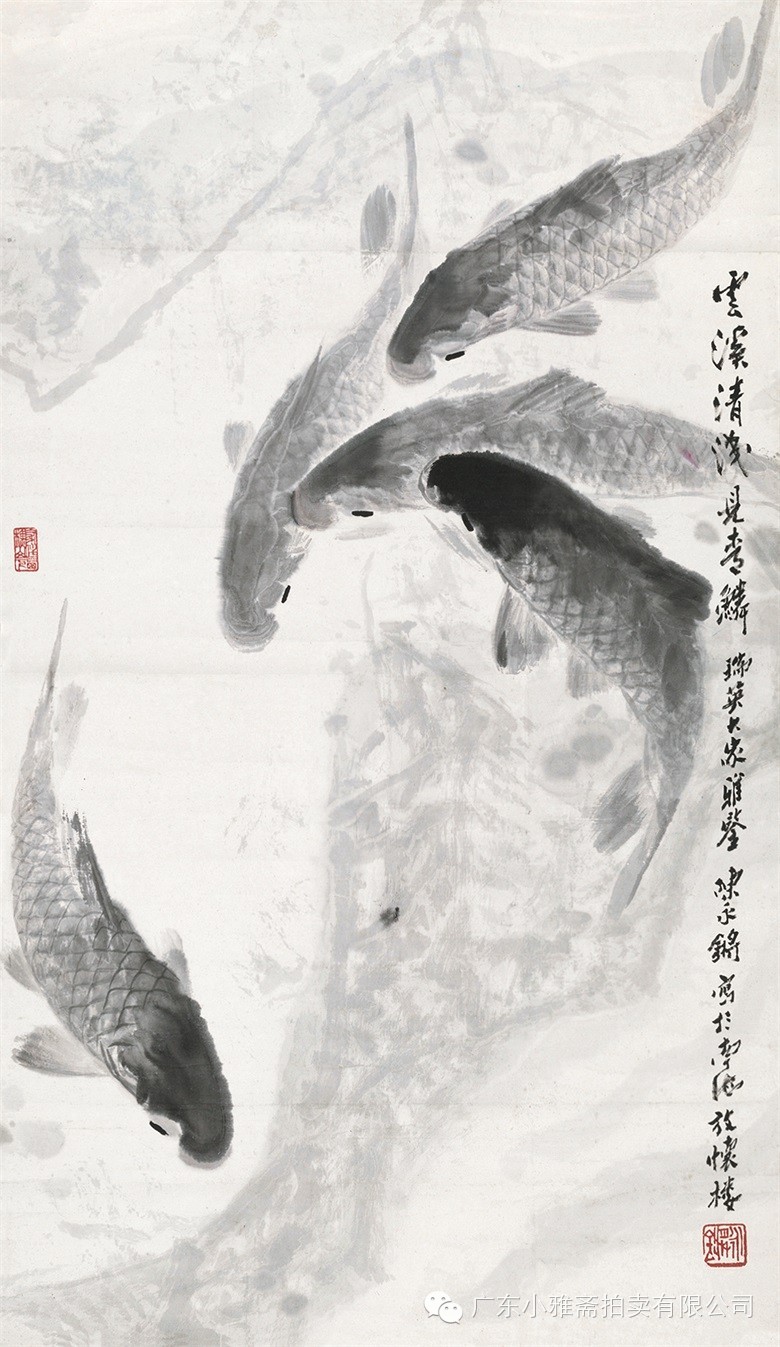 雲溪清淺見青鱗 瑞英大家雅鑒 陳永鏘寫於南海放懷樓
广东小雅斋拍卖有限公司